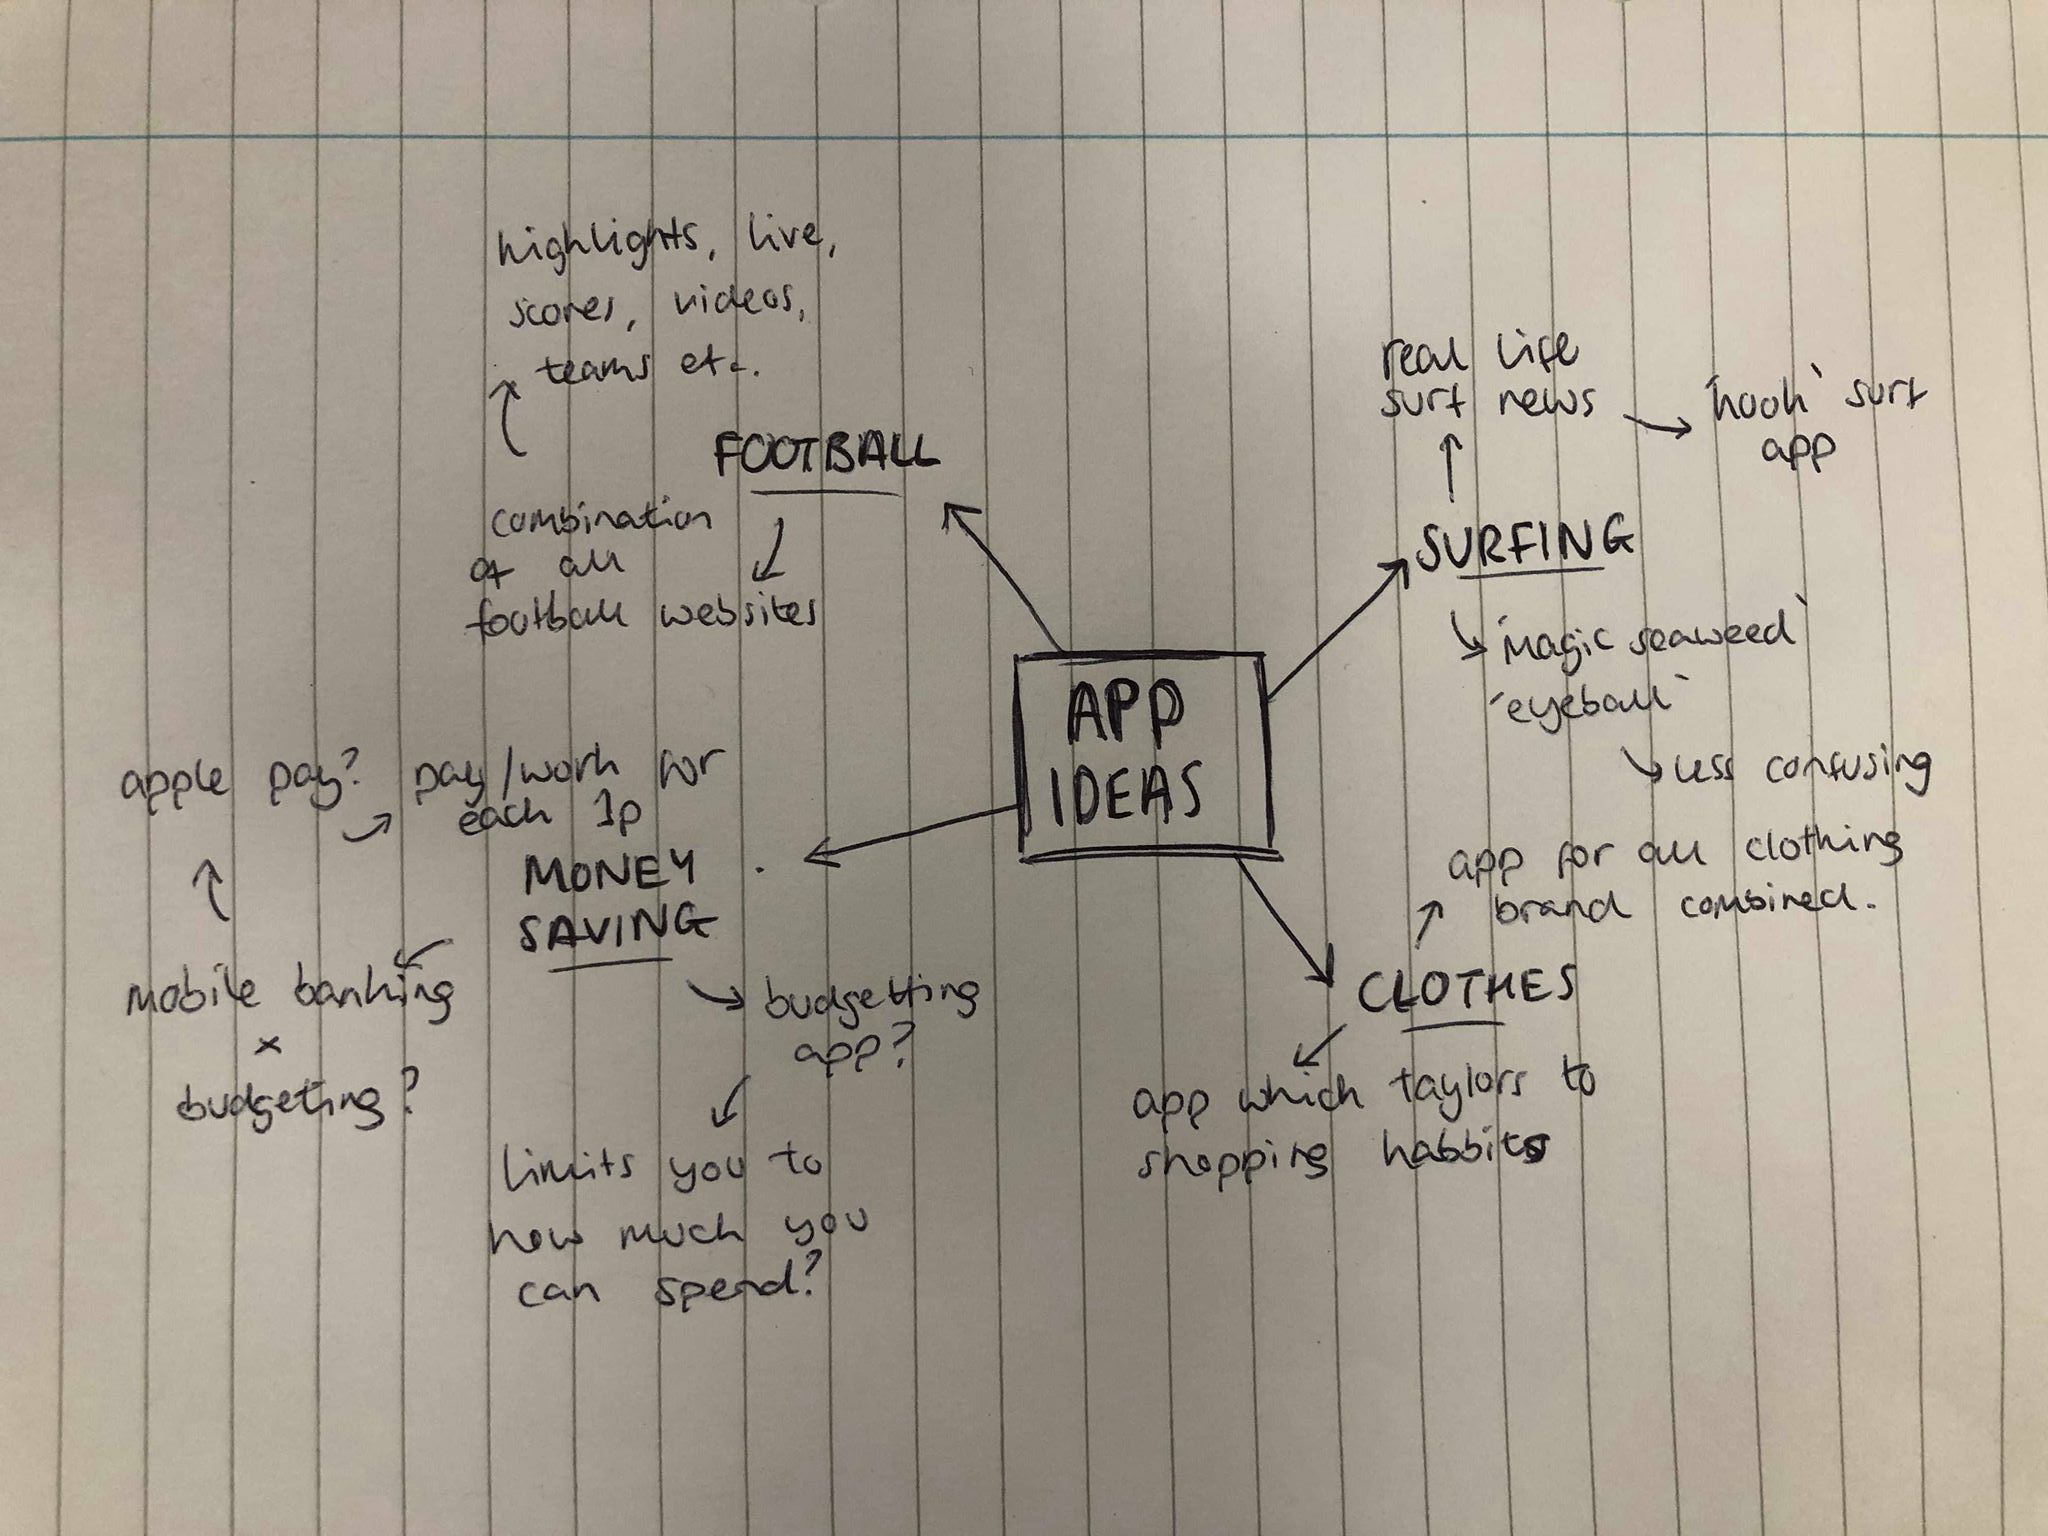 highlights, live,
scores, videos,
teams etc.
FOOTBALL
combination
of all
football websites
real life
surf news
'hook' surf
app
SURFING
'Magic seaweed'
'eyeball'
less confusing
APP
IDEAS
apple pay?
pay/work for
each 1p
MONEY
SAVING
mobile banking
x
budgeting?
budgetting
app?
limits you to
how much you
can spend?
app for all clothing
brand combined.
CLOTHES
app which taylors to
shopping habbits